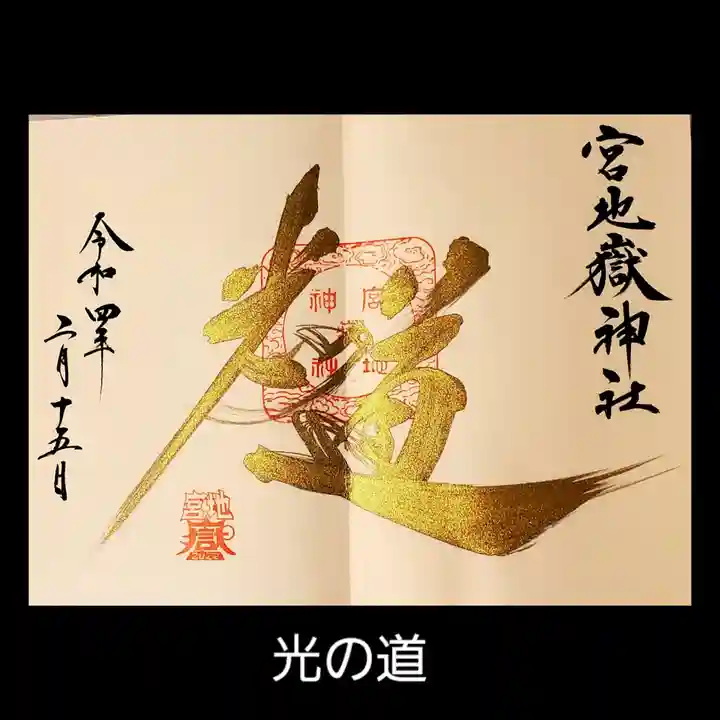 宮地嶽神社
光の道
宮地嶽神社
令和四年
二月十五日
光の道